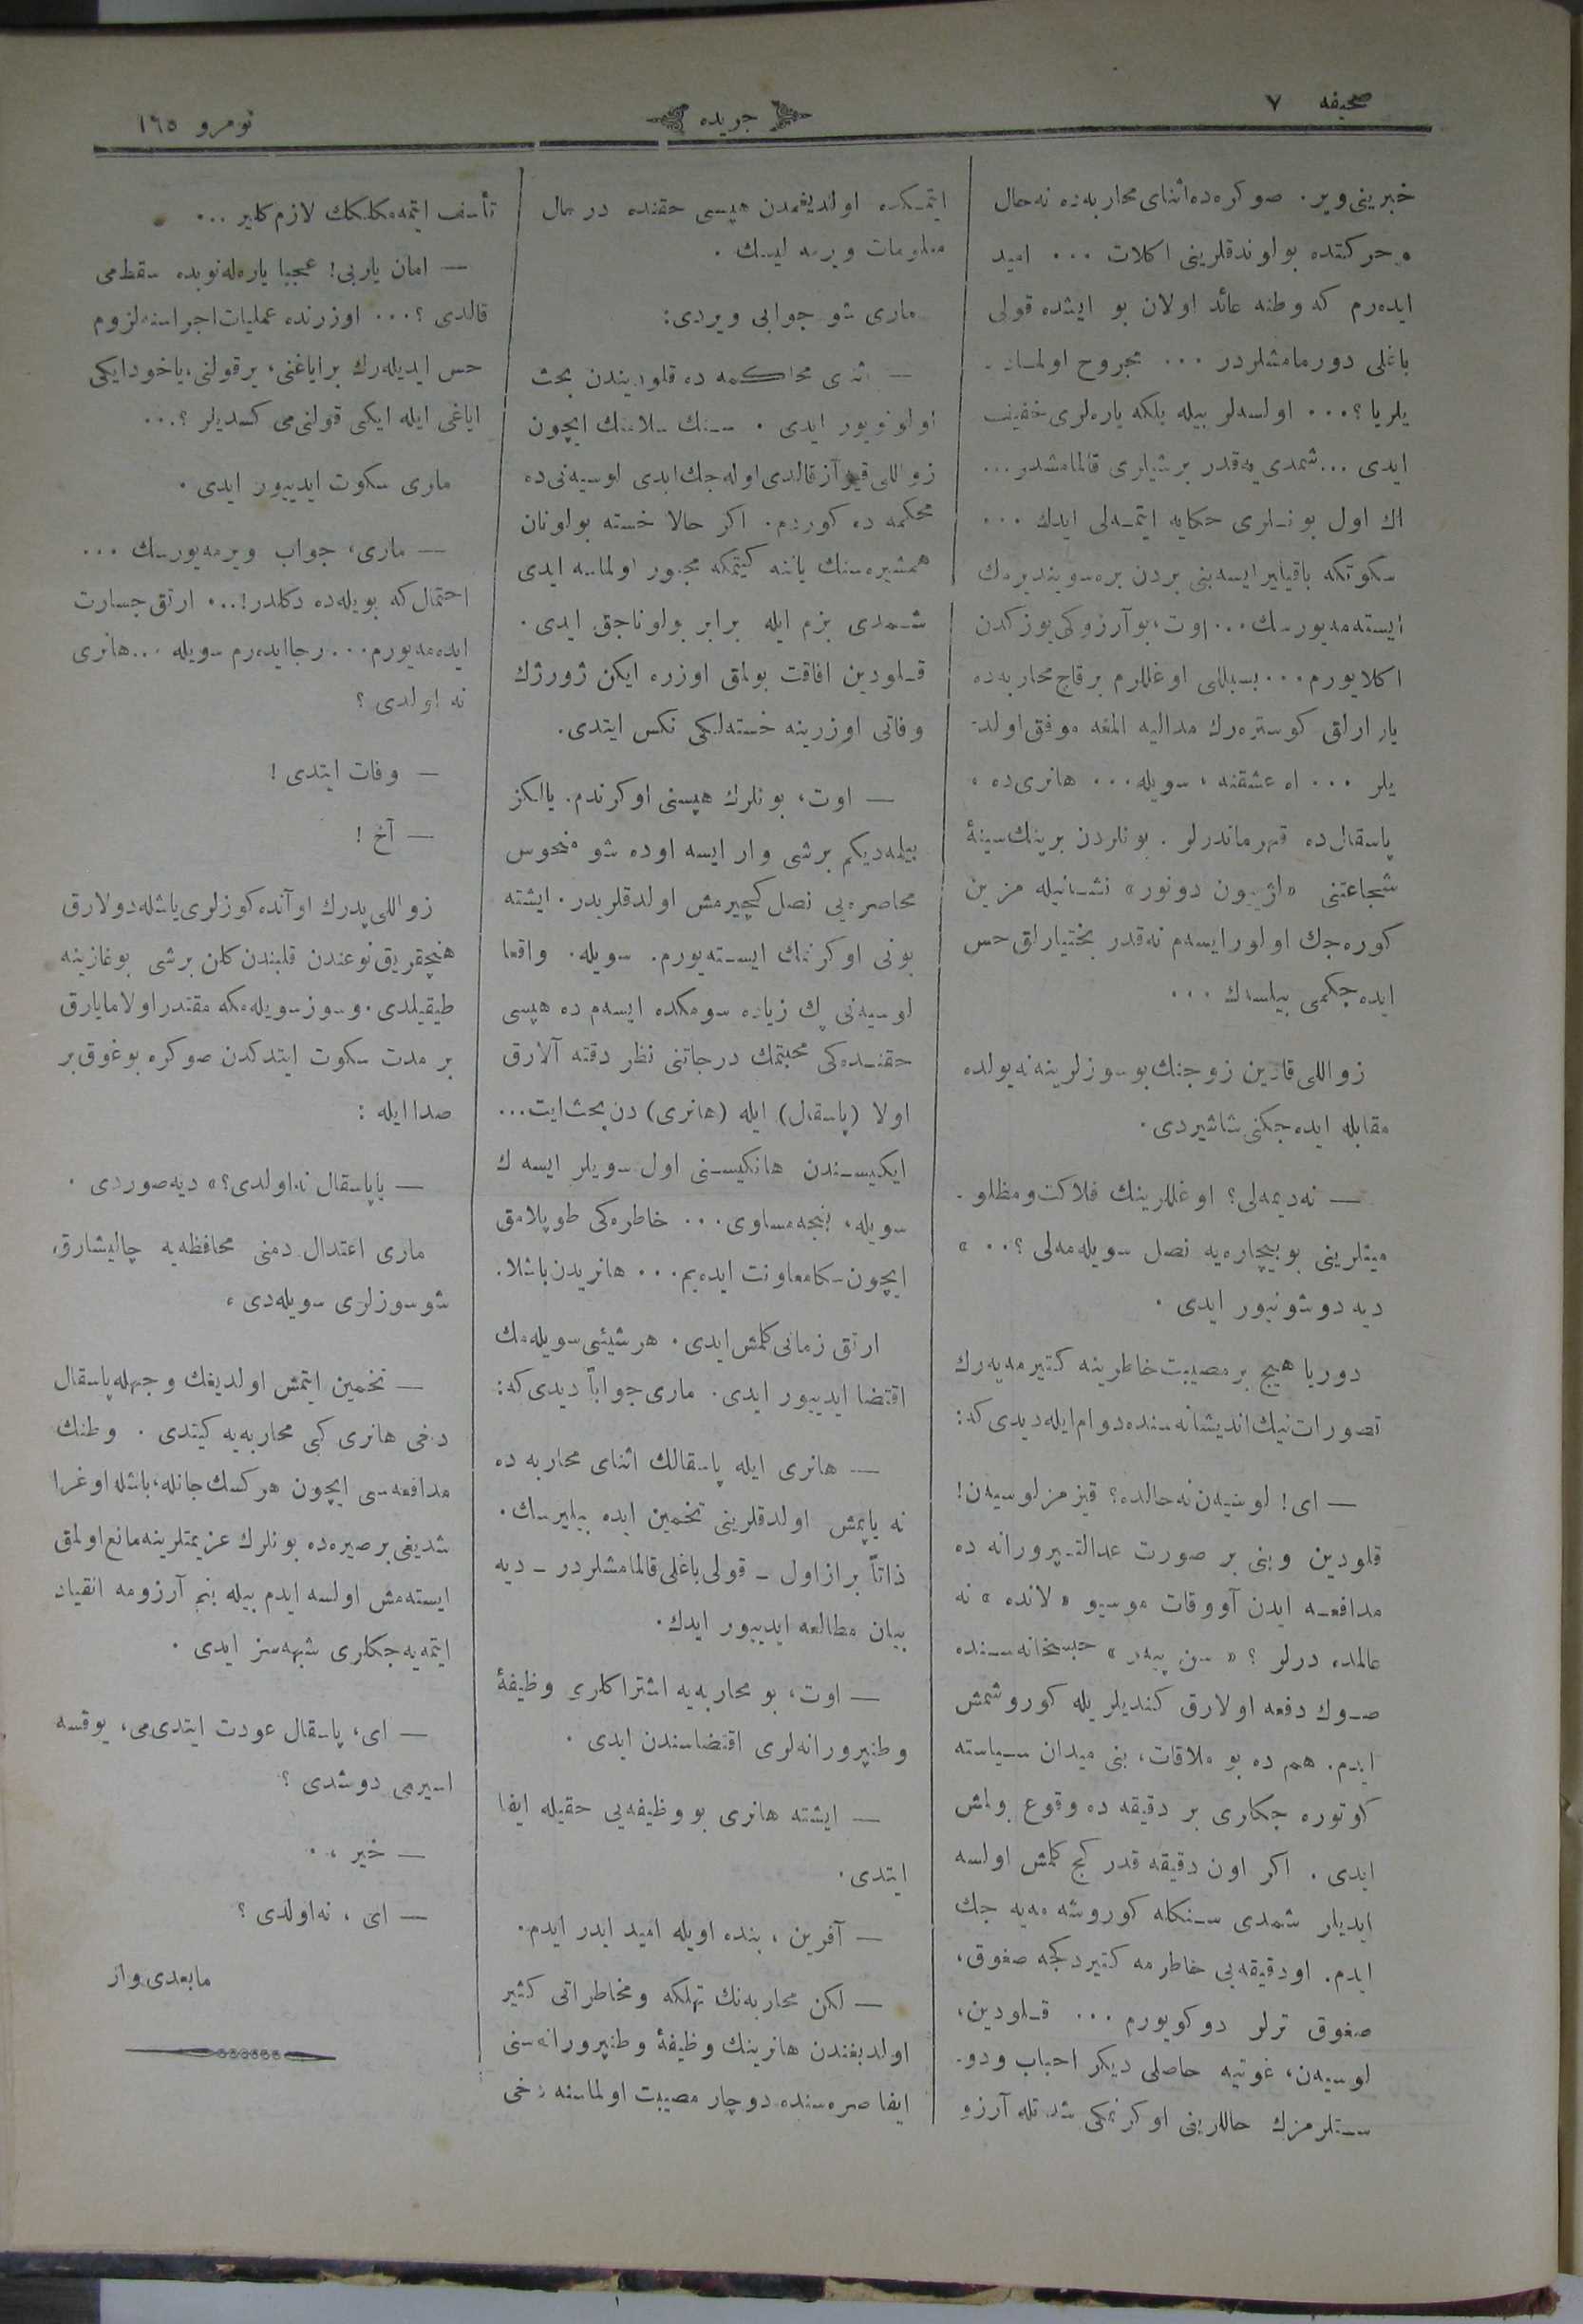 صحيفه ٧
جريده
نومرو ١٦٥
خبرينی وير. صوكره ده اثنای محاربه ده نه حال
و حركتده بولوندقلرينی اكلات ... اميد
ايده‌رم كه وطنه عائد اولان بو ايشده قولی
باغلی دورمامشلردر ... مجروح اولمـاد-
يلر يا؟... اولسه‌لر بيله بلكه ياره‌لری خفيف
ايدی ...شمدی‌يه قدر برشيلری قالمامشدر...
اك اول بونـلری حكايه ايتمـه‌لی ايدك ...
سكوتكه باقيلير ايسه بنی بردن بره سوينديرمك
ايسته‌مه‌يورسك... اوت، بو آرزوكی يوزكدن
اكلايورم... بسبللی اوغللرم برقاچ محاربه ده
يارارلق كوستره‌رك مداليه المغه موفق اولد-
يلر ... اه عشقنه ، سويله... هانری ده ،
پاسقال ده قهرماندرلر . بونلردن برينك سينهٔ
شجاعتنی «لژيون دونور» نشـانيله مزين
كوره جك اولور ايسه‌م نه قدر بختيارلق حس
ايده جكمی بيلسه‌ك ...
زواللی قادين زوجنك بو سوزلرينه نه يولده
مقابله ايده جكنی شاشيردی.
— نه ديمه‌لی؟ اوغللرينك فلاكت و مظلو-
ميتلرينی بو بيچاره‌يه نصل سويله‌مه‌لی ؟.. »
ديه دوشونيور ايدی .
دوريا هيچ بر مصيبت خاطرينه كتيرمه‌يه‌رك
تصورات نيك انديشانه سنده دوام ايله ديدی كه:
— ای! لوسيه‌ن نه حالده؟ قيزمز لوسيه‌ن!
قلودين و بنی بر صورت عدالتـپرورانه ده
مدافعـه ايدن آووقات موسيو « لانده » نه
عالمده درلر ؟ « سن پيه‌ر » حبسخانه سـنده
صـوك دفعه اولارق كنديلريله كوروشمش
ايدم. هم ده بو ملاقات، بنی ميدان سـياسته
كوتوره جكلری بر دقيقه ده وقوع بولمش
ايدی . اكر اون دقيقه قدر كچ كلمش اولسه
ايديلر شمدی سـنكله كوروشه‌مه‌يه جك
ايدم. او دقيقه‌يی خاطرمه كتيردكجه صغوق،
صغوق ترلر دوكويورم ... قـلودين،
لوسيه‌ن، غوتيه حاصلی ديكر احباب و دو-
سـتلرمزك حاللرينی اوكرنمكی شدتله آرزو
ايتمـكده اولديغمدن هپسی حقنده در حال
معلومات ويرمه ليسك .
ماری شو جوابی ويردی:
— اثنای محاكمه ده قلوديندن بحث
اولونويور ايدی . سـنك سلامتك ايچون
زواللی قيز آز قالدی اوله‌جك ايدی لوسيه‌نی ده
محكمه ده كوردم. اكر حالا خسته بولونان
همشيره سنك ياننه كيتمكه مجبور اولماسه ايدی
شـمدی بزم ايله برابر بولوناجق ايدی.
قـلودين افاقت بولمق اوزره ايكن ژورژك
وفاتی اوزرينه خسته‌لكی نكس ايتدی.
— اوت، بونلرك هپسنی اوكرندم. يالكز
بيلمه‌ديكم برشی وار ايسه اوده شو منحوس
محاصره‌يی نصل كچيرمش اولدقلريدر. ايشته
بونی اوكرنمك ايسـته‌يورم. سويله. واقعا
لوسيه‌نی پك زياده سومكده ايسه‌م ده هپسی
حقنـده‌كی محبتمك درجاتنی نظر دقته آلارق
اولا (پاسقال) ايله (هانری) دن بحث ايت...
ايكيسـندن هانكيسـنی اول سويلر ايسه ك
سويله، بنجه مساوی... خاطره‌كی طوپلامق
ايچون سكا معاونت ايده‌يم... هانريدن باشلا.
ارتق زمانی كلمش ايدی. هر شيئی سويله‌مك
اقتضا ايدييور ايدی. ماری جواباً ديدی كه:
— هانری ايله پاسقالك اثنای محاربه ده
نه ياپمش اولدقلرينی تخمين ايده بيليرسك.
ذاتاً بر از اول - قولی باغلی قالمامشلردر - ديه
بيان مطالعه ايدييور ايدك.
— اوت، بو محاربه‌يه اشتراكلری وظيفهٔ
وطنپرورانه‌لری اقتضاسندن ايدی .
— ايشته هانری بو وظيفه‌يی حقيله ايفا
ايتدی.
— آفرين ، بنده اويله اميد ايدر ايدم.
— لكن محاربه‌نك تهلكه و مخاطراتی كثير
اولديغندن هانرينك وظيفهٔ وطنپرورانه سنی
ايفا صره سنده دوچار مصيبت اولماسنه دخی
تأسف ايتمه‌مكلكك لازم كلير ...
— امان ياربی! عجبا ياره‌له‌نوبده سقط می
قالدی ؟... اوزرنده عمليات اجراسنه لزوم
حس ايديله‌رك بر اياغنی، بر قولنی، ياخود ايكی
اياغی ايله ايكی قولنی می كسديلر ؟...
ماری سكوت ايدييور ايدی .
— ماری، جواب ويرمه‌يورسك ...
احتمال كه بويله ده دكلدر!... ارتق جسارت
ايده‌مه‌يورم... رجا ايده‌رم سويله ... هانری
نه اولدی ؟
— وفات ايتدی !
— آخ !
زواللی پدرك او آنده كوزلری ياشله دولارق
هنچقريق نوعندن قلبندن كلن برشی بوغازينه
طيقيلدی. و سوز سويله‌مكه مقتدر اولامايارق
بر مدت سكوت ايتدكدن صوكره بوغوق بر
صدا ايله :
— يا پاسقال نه اولدی؟» ديه صوردی .
ماری اعتدال دمنی محافظه‌يه چاليشارق،
شو سوزلری سويله‌دی ،
— تخمين ايتمش اولديغك وجهله پاسقال
دخی هانری كبی محاربه‌يه كيتدی . وطنك
مدافعه‌سی ايچون هركسك جانله، باشله اوغرا
شديغی بر صيره ده بونلرك عزيمتلرينه مانع اولمق
ايسته‌مش اولسه ايدم بيله بنم آرزومه انقياد
ايتمه‌يه جكلری شبهه سز ايدی .
— ای، پاسقال عودت ايتدی می، يوقسه
اسيرمی دوشدی ؟
— خير ..
— ای ، نه اولدی ؟
مابعدی وار